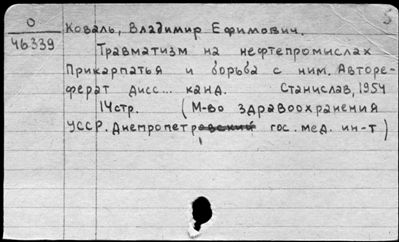 5
О
46339
Коваль, Владимир Ефимович.
Травматизм на нефтепромислах
Прикарпатья и борьба с ним. Авторе-
ферат дисс... канд. Станислав, 1954
14стр. (М-во здравоохранения
УССР. Днепропетровский гос. мед. ин-т)